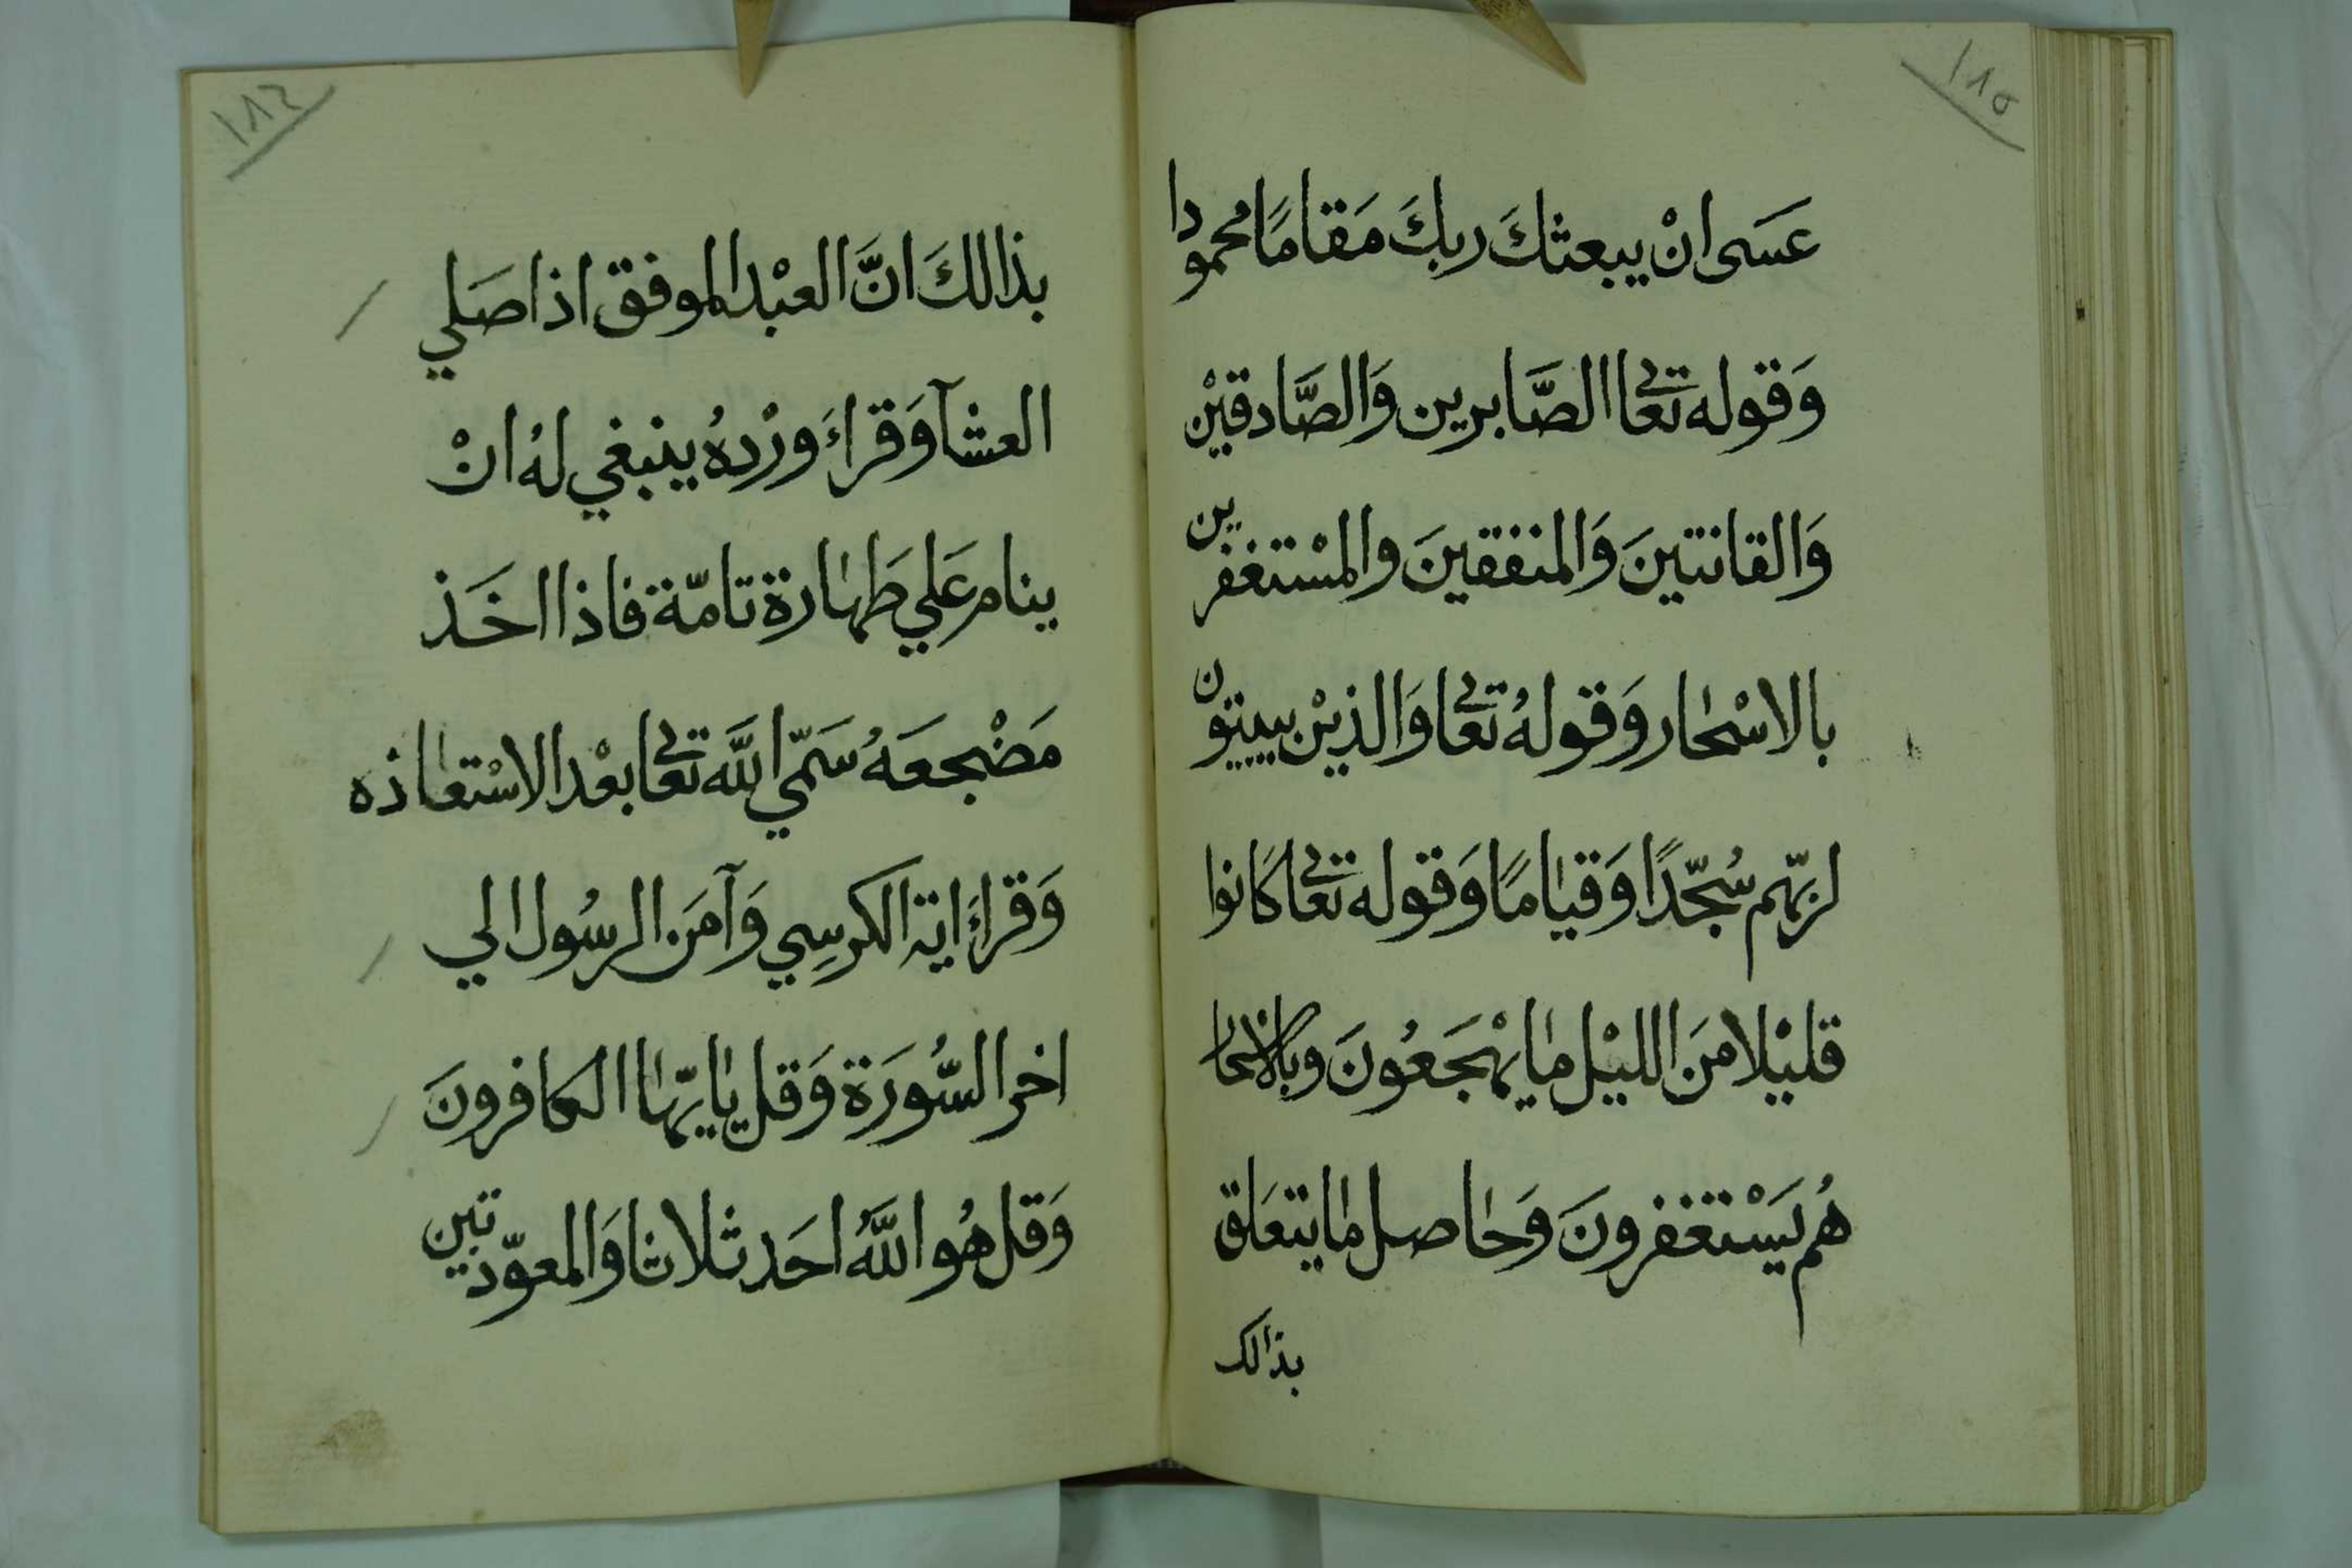 ١٨٥
عَسَى انْ يبعثكَ ربكَ مَقامًا محمودا
وَقوله تعالى الصَّابرين وَالصَّادقيْن
وَالقانتينَ وَالمنفقينَ والمسْتغفرين
بالاسْحٰار وَقولهُ تعالى وَالذيْن يبيتون
لربّهم سُجّدًا وَقيٰامًا وَقوله تعالى كانوا
قليْلا منَ الليْل مٰا يهْجَعُونَ وبالاسْحار
هُم يَسْتغفرونَ وَحٰاصل مٰا يتعَلق
بذالك
١٨٦
بذالكَ انَّ العبْد الموفق اذا صَلي
العشآ وَقراءَ ورْدهُ ينبغي لهُ انْ
ينام عَلي طَهٰارة تامّة فاذا اخَذ
مَضْجعَهُ سَمّي اللَّه تعالى بعْد الاسْتعٰاذه
وَقراءَ اية الكرسِي وَآمَن الرسُول الي
اخر السُّورَة وَقل يٰايّهٰا الكافرونَ
وَقل هُو اللَّهُ احَد ثلاثا وَالمعوّذتين